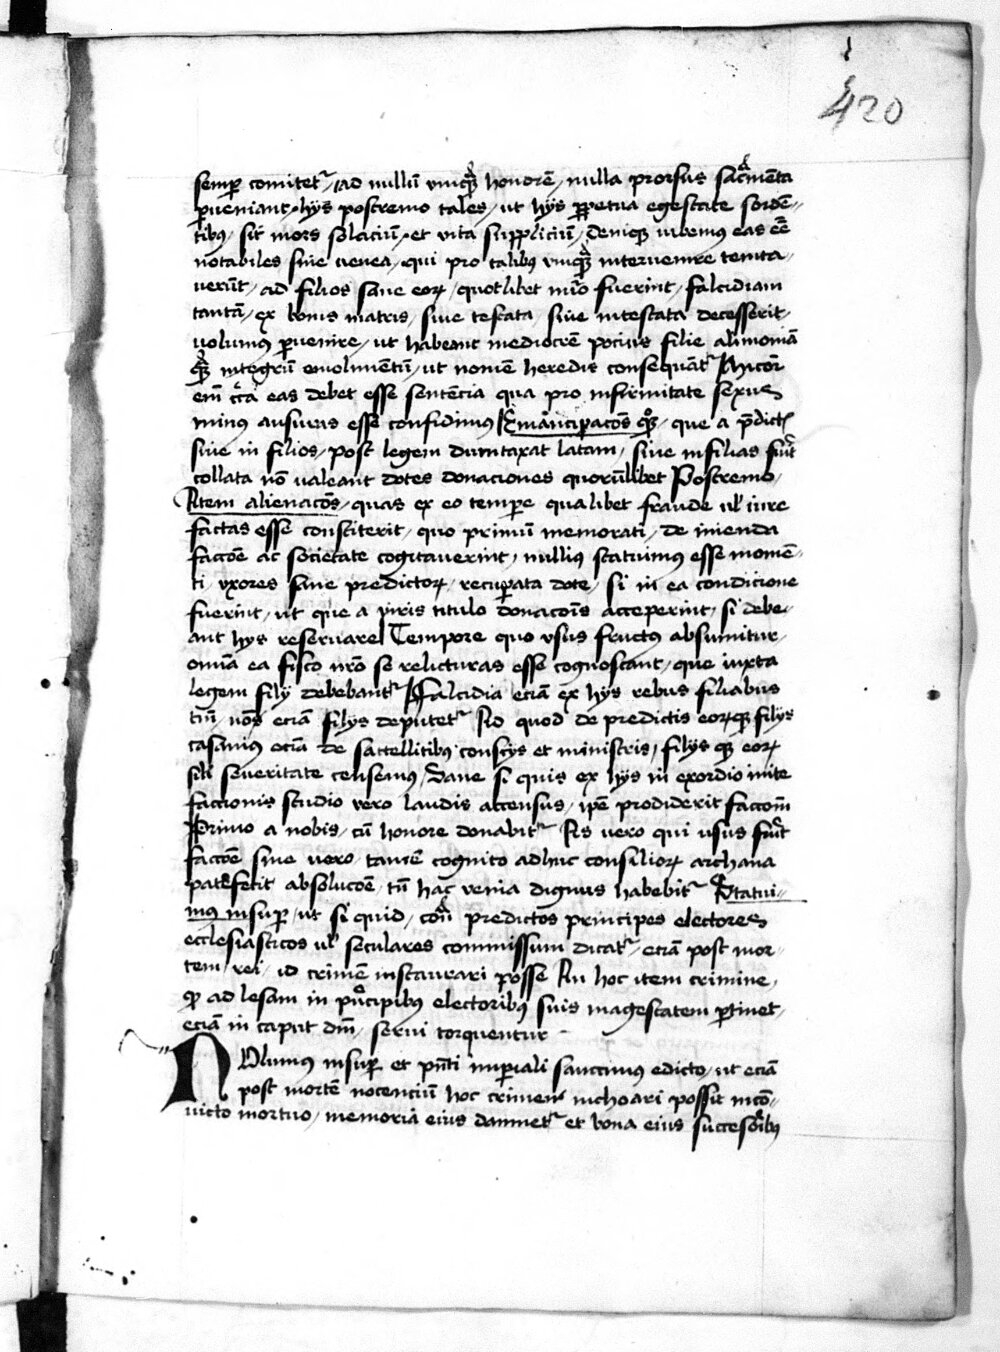 420
semp̱ comitetᷣ / ad nullū vnuqᷓ honorē / nulla prorsus sacᷓmenta
ꝑueniant / hijs postremo tales / ut hijs ꝑpetua egestate sorden-
tibꝰ / sit mors solaciū / et vita suppliciū / Deniqꝫ iubemus eas eē
notabiles sine venea / qui pro talibus vnuqᷓ interuenire tenta-
uerūt / ad filios sane eoꝝ / quotlibet nūo fuerint / falcidiam
tantā / ex bonis matris / siue testata / siue intestata decesserit
volumus ꝑuenire / ut habeant mediocrē pocius filie alimoniā
qᷓ integrū emolumentū / ut nomē heredis consequātᷣ Micior
eiī cᷓa eas debet esse sentencia qua pro infirmitate sexus
minus ausuras esse confidimus Emancipacōes qꝫ / que a p̄dictꝭ
siue in filios / post legem dumtaxat latam / siue in filias fūt
collata nō valeant dotes donaciones quorūlibet Postremo
Item alienacōes / quas ex eo tempore qualibet fraude ul iure
factas esse constiterit / quo primū memorati / de inienda
faccōe ac societate cogitauerint / nullius statuimus esse momen-
ti / vxores sane predictoꝝ / recuꝑata dote / si in ea condicione
fuerint / ut que a viris titulo donacōis acceperint / si debe-
ant hijs reseruare Tempore quo vsus fructus absumitur
omnia ea fisco nr̄o se relicturas esse cognoscant / que iuxta
legem filij debebantᷣ Falcidia eciā ex hijs rebus filiabus
tm̄ / nō eciā filijs deputetᷣ Id quod de predictis eorꝫqꝫ filijs
casamus eciā de sattellitibus conscijs et ministris / filijs qꝫ eoꝝ
sili seueritate censemus / Sane si quis ex hijs in exordio inite
faccionis studio vero laudis accensus / ip̄e prodiderit faccōm
Primo a nobis / cū honore donabitᷣ Is vero qui usus fūit
faccōe sine vero / tamē cognito adhuc consilioꝝ archana
patefecit absolucōe / tm̄ hac venia dignus habebitᷣ Statui-
mus insuꝑ / ut si quid / cōn predictos principes electores
ecclesiasticos ul seculares commissum dicatᷣ / eciā post mor-
tem rei / id crimē instaurari posse In hoc item crimine
qᷓ ad lesam in pͥncipibꝰ electoribus suis magestatem ꝑtinet
eciā in caput dn̄i / serui torquentur
Nolumus insuꝑ et pn̄ti imꝑiali sanccimus edicto / ut eciā
post mortē nocenciū hoc crimen inchoari possit in con-
uicto mortuo / memoria eius damnetᷣ et bona eius succesoribꝰ